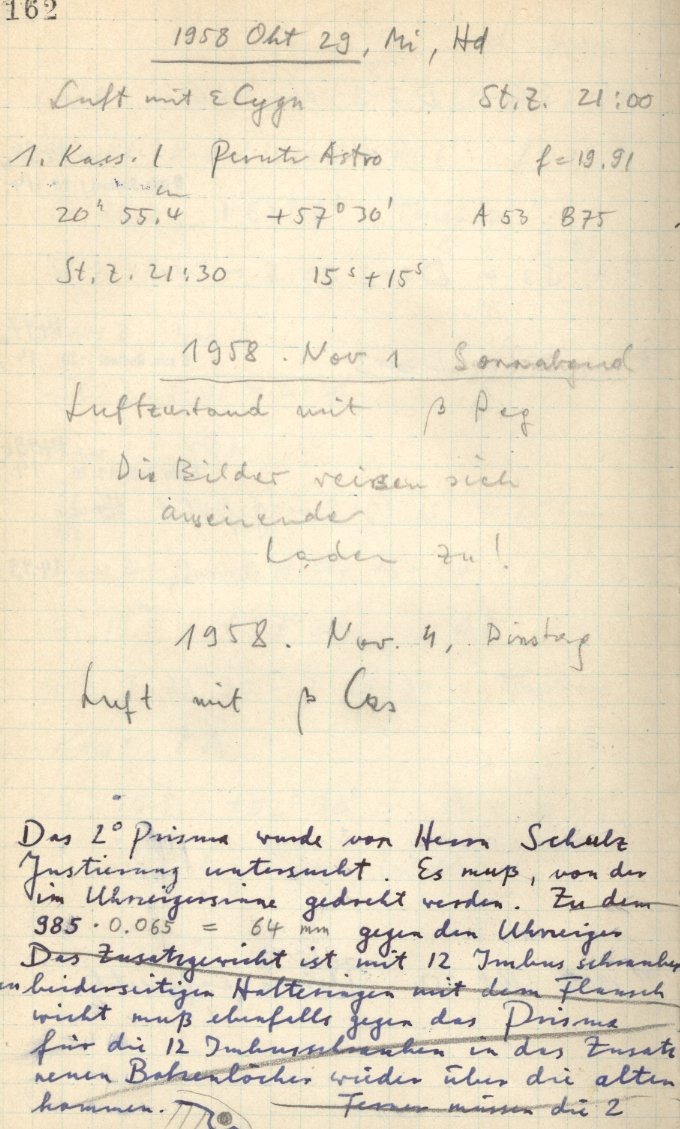 162
1958 Okt 29, Mi, Hd
Luft mit ε Cygn St.Z. 21:00
1. Kass. 1 Perutz Astro f = 19.91
20ʰ 55.4ᵐ +57° 30' A 53 B 75
St.Z. 21:30 15ˢ + 15ˢ
1958. Nov 1 Sonnabend
Luftzustand mit β Peg
Die Bilder reissen sich
Laden zu!
1958. Nov. 4, Dinstag
Luft mit β Cas
Das 2° Prisma wurde von Herrn Schulz
Justierung untersucht. Es muß, von der
im Uhrzeigersinne gedreht werden. Zu dem
985 · 0.065 = 64 mm gegen den Uhrzeiger
Das Zusatzgewicht ist mit 12 Imbusschrauben
beiderseitigen Halteringen mit dem Flansch
wicht muß ebenfalls gegen das Prisma
für die 12 Imbusschrauben in das Zusatz
neuen Bolzenlöcher wieder über die alten
kommen. Ferner müssen die 2